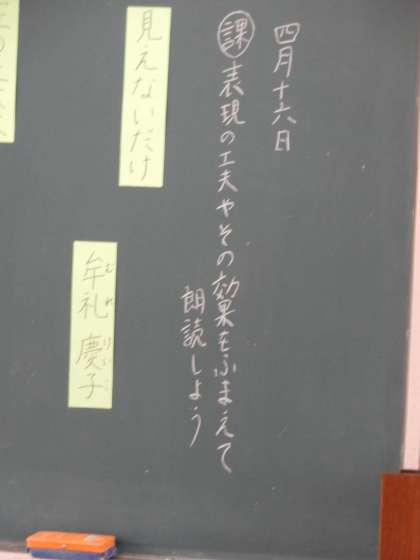 四月十六日
課 表現の工夫やその効果をふまえて
朗読しよう
見えないだけ
牟礼 慶子
むれ けいこ